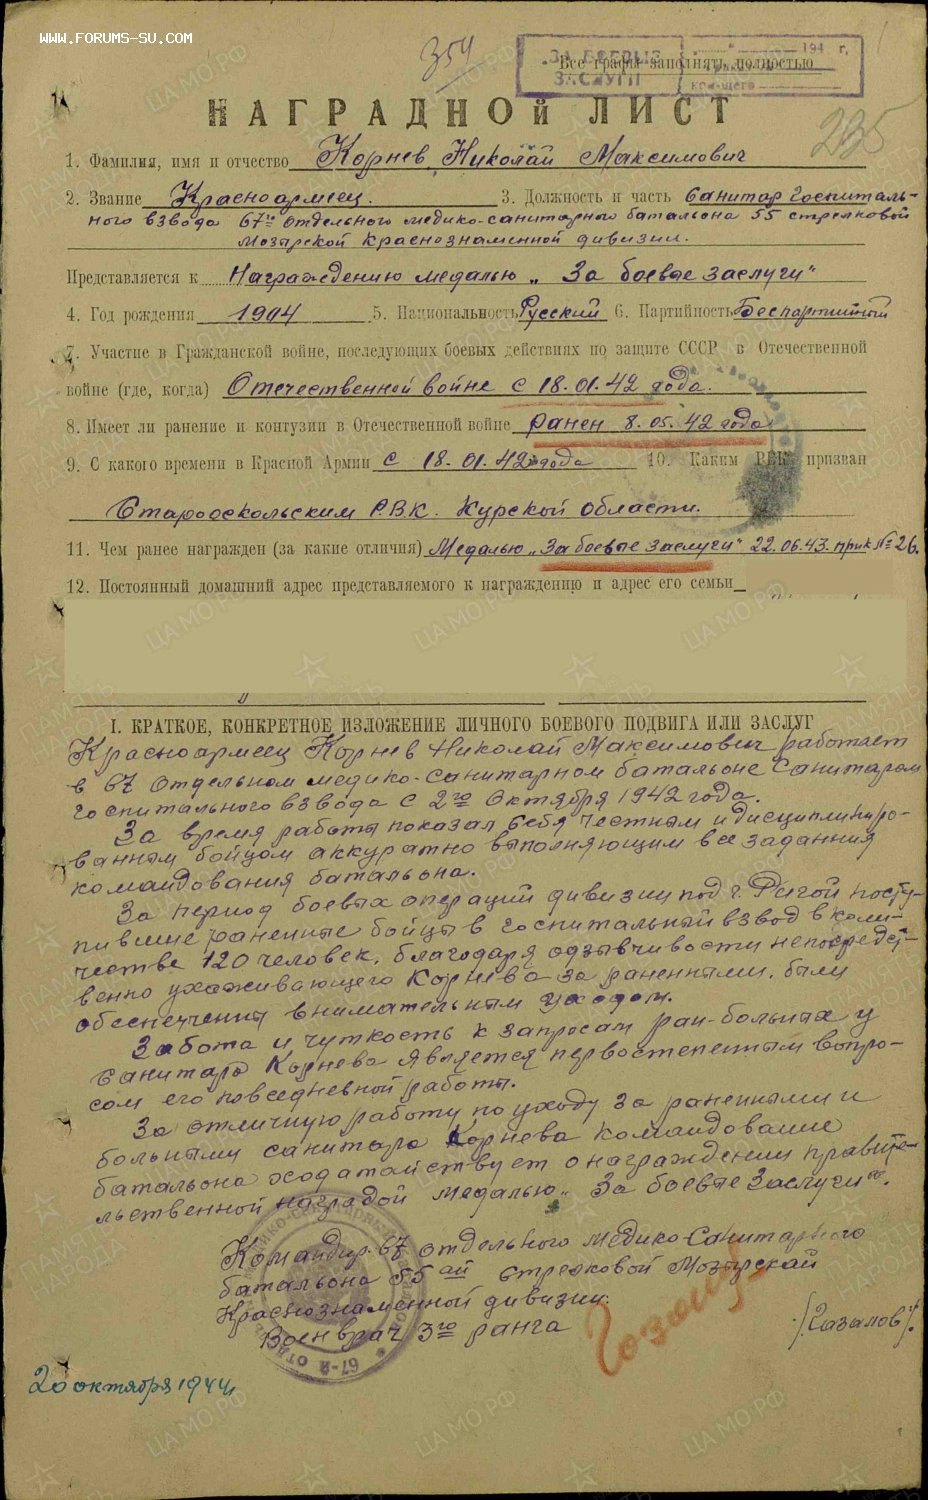 WWW.FORUMS-SU.COM
354
ЗА БОЕВЫЕ
ЗАСЛУГИ
194 г,
Все графы заполнять полностью
НАГРАДНОй ЛИСТ
235
1. Фамилия, имя и отчество Корнев Николай Максимович
2. Звание Красноармеец. 3. Должность и часть Санитар Госпиталь-
ного взвода 67го отдельного медико-санитарного батальона 55 стрелковой
Мозырской Краснознаменной дивизии.
Представляется к Награждению медалью „За боевые заслуги"
4. Год рождения 1904 5. Национальность Русский 6. Партийность Беспартийный
7. Участие в Гражданской войне, последующих боевых действиях по защите СССР в Отечественной
войне (где, когда) Отечественной войне с 18.01.42 года.
8. Имеет ли ранение и контузии в Отечественной войне ранен 8.05.42 года
9. С какого времени в Красной Армии с 18.01.42 года 10. Каким РВК призван
Старооскольским Р.В.К. Курской области.
11. Чем ранее награжден (за какие отличия) Медалью „За боевые заслуги" 22.06.43. прик № 26.
12. Постоянный домашний адрес представляемого к награждению и адрес его семьи
I. КРАТКОЕ, КОНКРЕТНОЕ ИЗЛОЖЕНИЕ ЛИЧНОГО БОЕВОГО ПОДВИГА ИЛИ ЗАСЛУГ
Красноармеец Корнев Николай Максимович работает
в 67 отдельном медико-санитарном батальоне Санитаром
Госпитального взвода с 2го Октября 1942 года.
За время работы показал себя честным и дисциплиниро-
ванным бойцом аккуратно выполняющим все задания
командования батальона.
За период боевых операций дивизии под г. Ригой посту-
пившие раненные бойцы в Госпитальный взвод в коли-
честве 120 человек, благодаря отзывчивости непосредст-
венно ухаживающего Корнева за раненными, были
обеспечены внимательным уходом.
Забота и чуткость к запросам ран-больных у
Санитара Корнева является первостепенным вопро-
сом его повседневной работы.
За отличную работу по уходу за раненными и
больными санитара Корнева командование
батальона ходатайствует о награждении правите-
льственной наградой медалью „За боевые Заслуги".
Командир 67 отдельного медико-Санитарного
батальона 55ай Стрелковой Мозырской
Краснознаменной дивизии.
Военврач 3го ранга
/Газалов/.
20 октября 1944